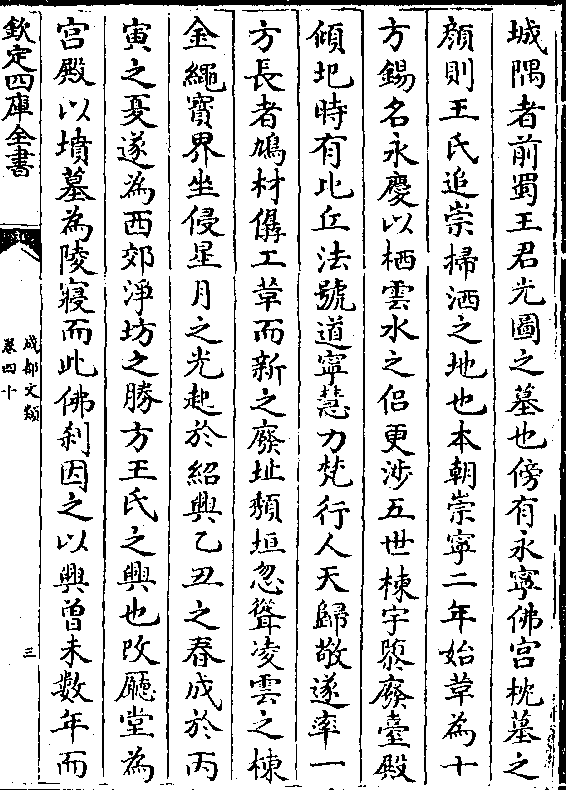 城隅者前蜀王君光圖之墓也傍有永寧佛宮枕墓之
顔則王氏追崇掃洒之地也本朝崇寧二年始革為十
方錫名永慶以栖雲水之侣更涉五世棟宇隳廢臺殿
傾圯時有比丘法號道寧慧力梵行人天歸敬遂率一
方長者鳩材僝工革而新之廢址頽垣忽聳凌雲之棟
金繩寳界坐侵星月之光起於紹興乙丑之春成於丙
寅之憂遂為西郊淨坊之勝方王氏之興也改廳堂為
宮殿以墳墓為陵寢而此佛刹因之以興曽未數年而
欽定四庫全書
成都文類
卷四十
三